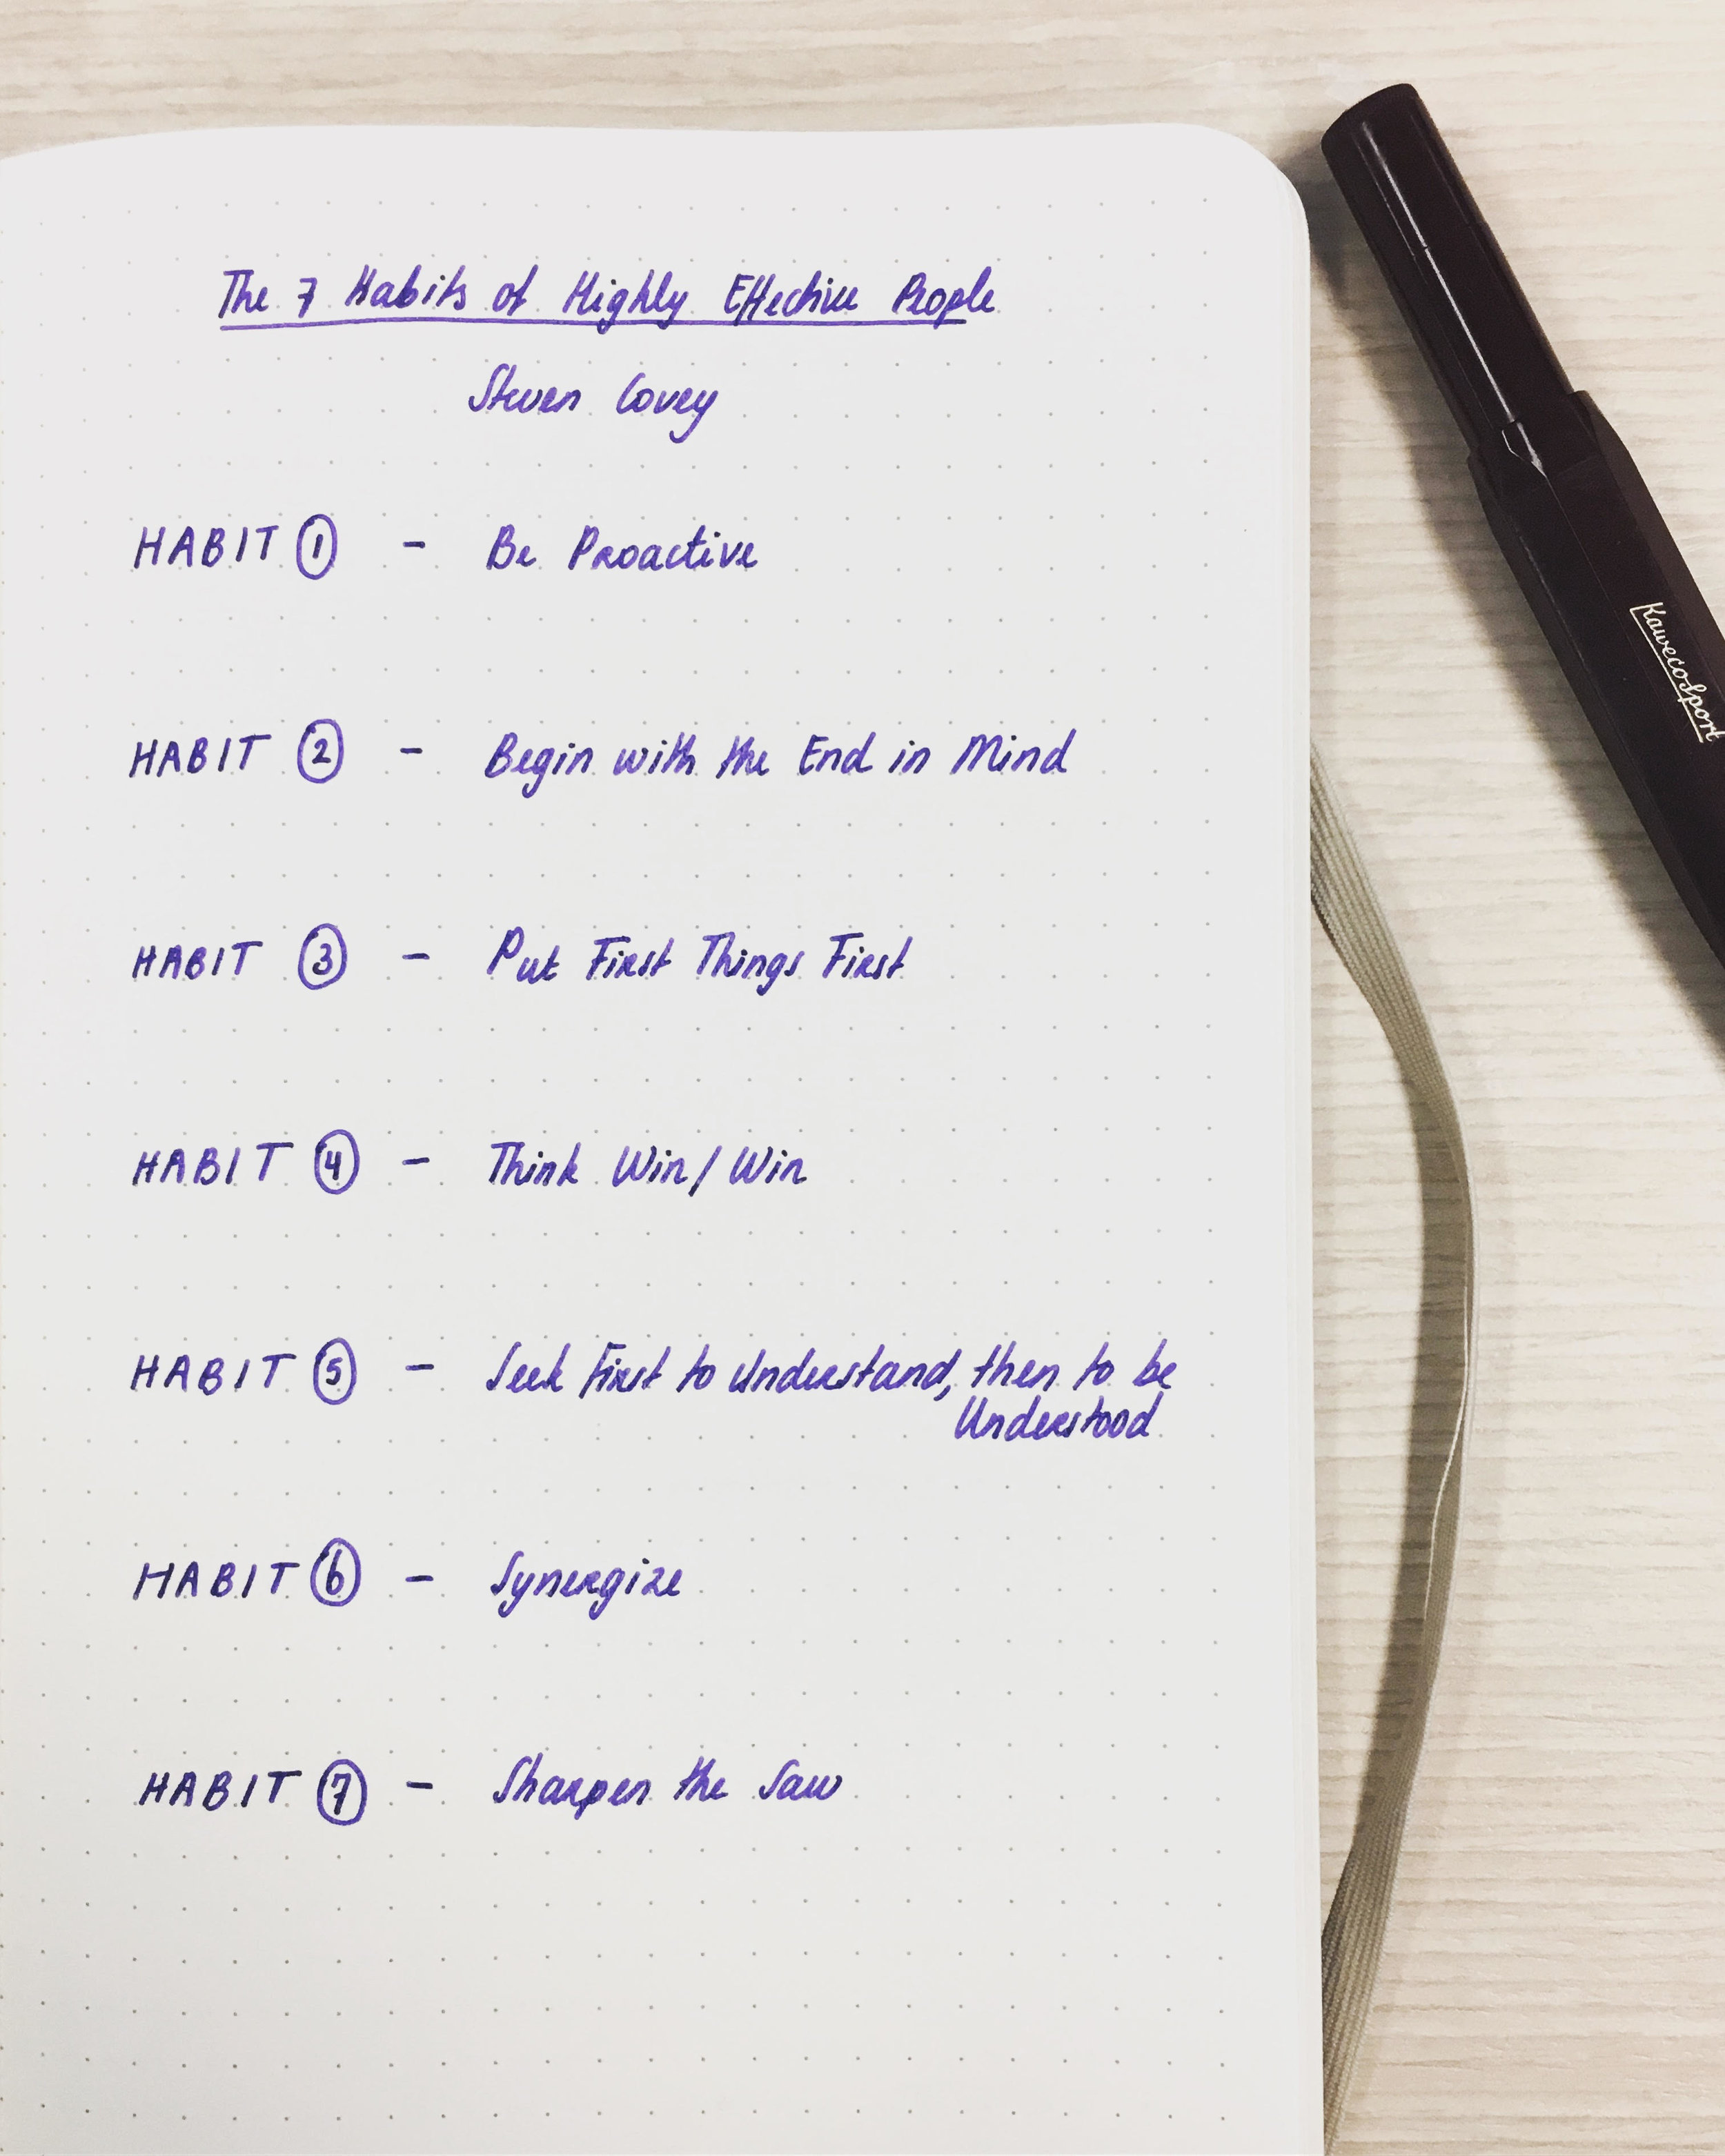 The 7 Habits of Highly Effective People
Steven Covey
HABIT 1 - Be Proactive
HABIT 2 - Begin with the End in Mind
HABIT 3 - Put First Things First
HABIT 4 - Think Win/Win
HABIT 5 - Seek First to Understand, then to be
Understood
HABIT 6 - Synergize
HABIT 7 - Sharpen the Saw
KawecoSport